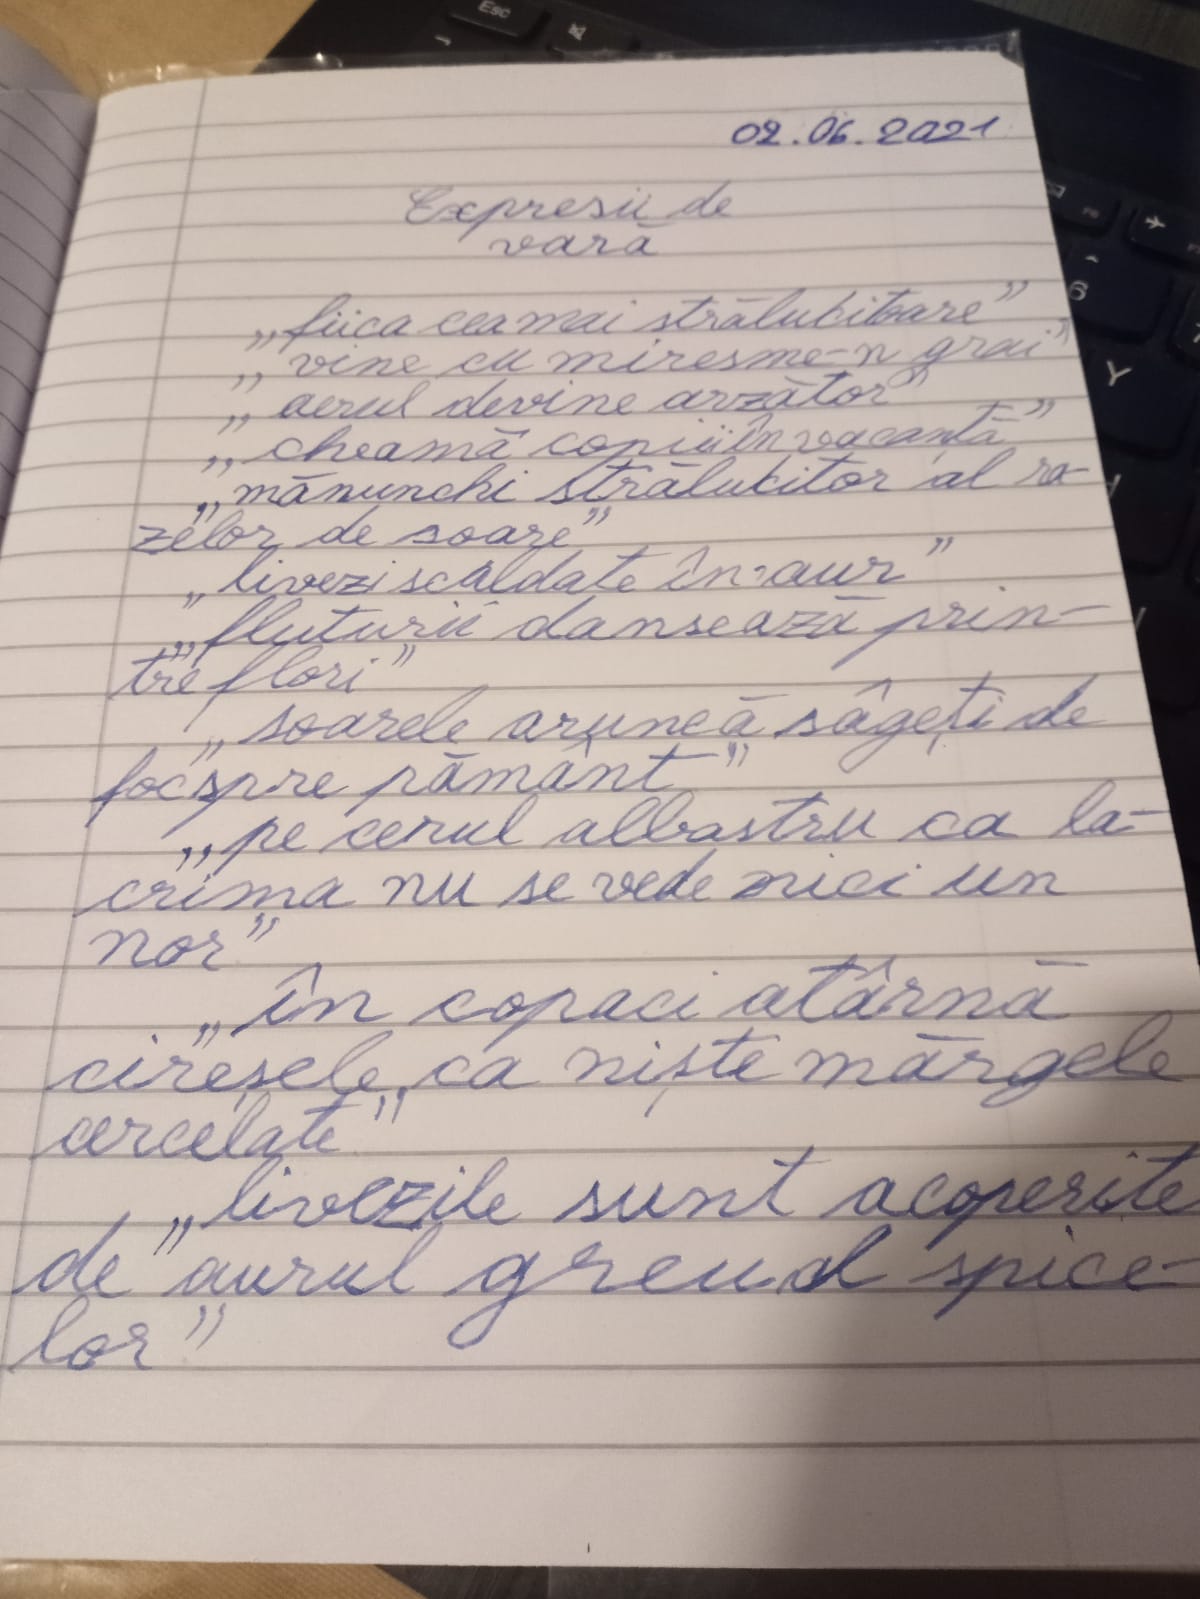 02.06.2021
Expresii de
vară
„fiica cea mai strălukitoare”
„vine cu miresme-n grai”
„aerul devine arzător”
„cheamă copiii în vacanță”
„mănunchi strălukitor al ra-
zelor de soare”
„livezi scăldate în aur”
„fluturii dansează prin-
tre flori”
„soarele aruncă sâgeți de
foc spre pământ”
„pe cerul albastru ca la-
crima nu se vede nici un
nor”
„în copaci atârnă
cireșele, ca niște mărgele
cercelate”
„livezile sunt acoperite
de aurul greu al spice-
lor”
Esc
6
Y